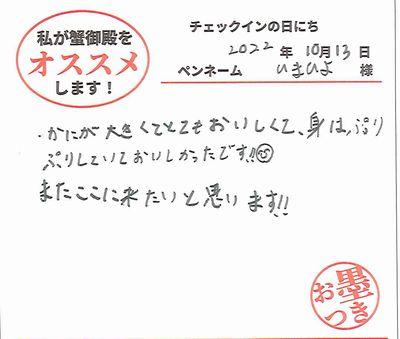 私が蟹御殿を
オススメ
します！
チェックインの日にち
2022 年 10月 13 日
ペンネーム ひまひよ 様
・かにが大きくてとてもおいしくて、身は、ぷり
ぷりしていておいしかったです!!
またここに来たいと思います!!
お墨
つき